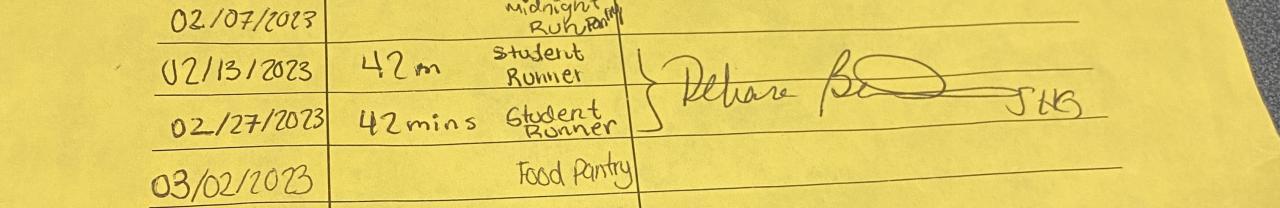 02/07/2023 Midnight
Run Pantry
02/13/2023 42m Student
Runner
02/27/2023 42mins Student
Runner
03/02/2023 Food Pantry